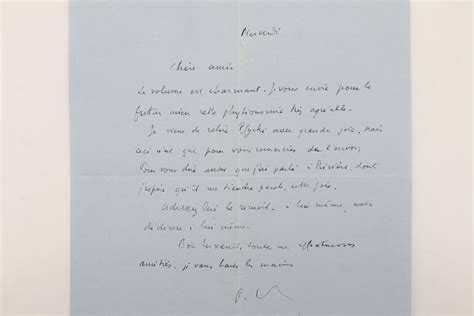 Mercredi
Chère amie
Le volume est charmant. Je vous envie pour le
futur mien cette physionomie très agréable.
Je viens de relire Psyché avec grande joie, mais
ceci n'est que pour vous remercier de l'envoi,
Pour vous dire aussi que j'ai parlé à Rivière, dont
j'espère qu'il me tiendra parole, cette fois.
Adressez lui le recueil à lui même, avec
dédicace à lui même.
Bon, toutes mes affectueuses
amitiés, je vous baise les mains